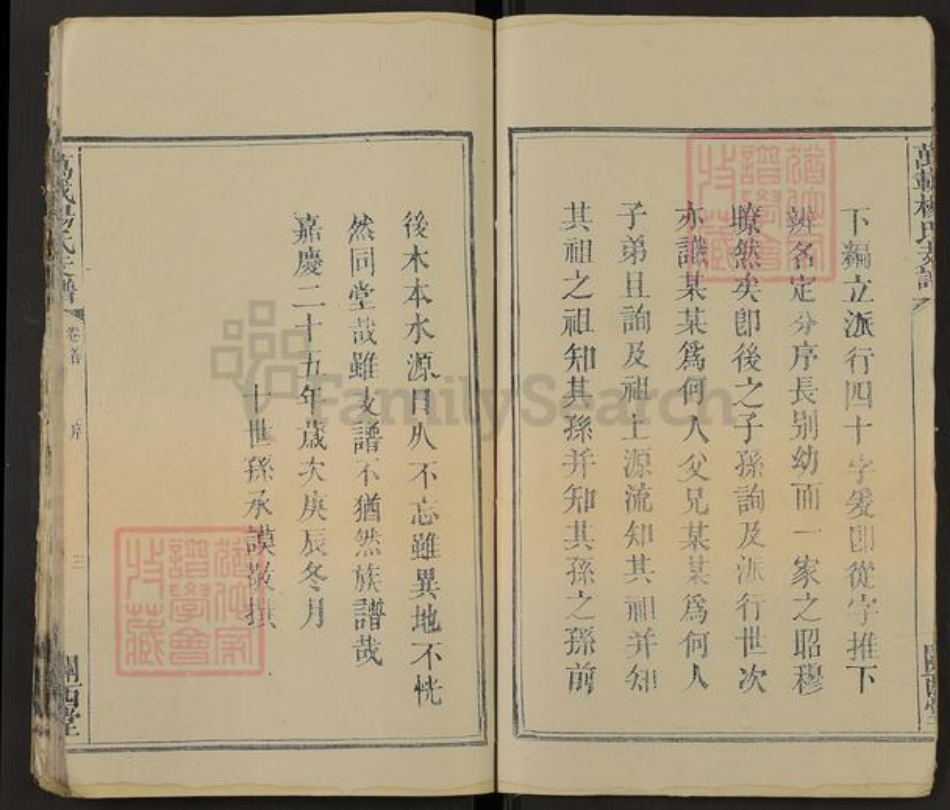 下編立派行四十字爰卽從字推下
辨名定分序長別幼而一家之昭穆
瞭然矣卽後之子孫詢及派行世次
亦譏某某爲何人父兄某某爲何人
子弟且詢及祖上源流知其祖并知
其祖之祖知其孫并知其孫之孫前
後木本水源日久不忘雖異地不恍
然同堂哉雖支譜不猶然族譜哉
嘉慶二十五年歲次庚辰冬月
十世孫承謨敬撰
萬載楊氏支譜
卷首
序
三
關西堂
FamilySearch